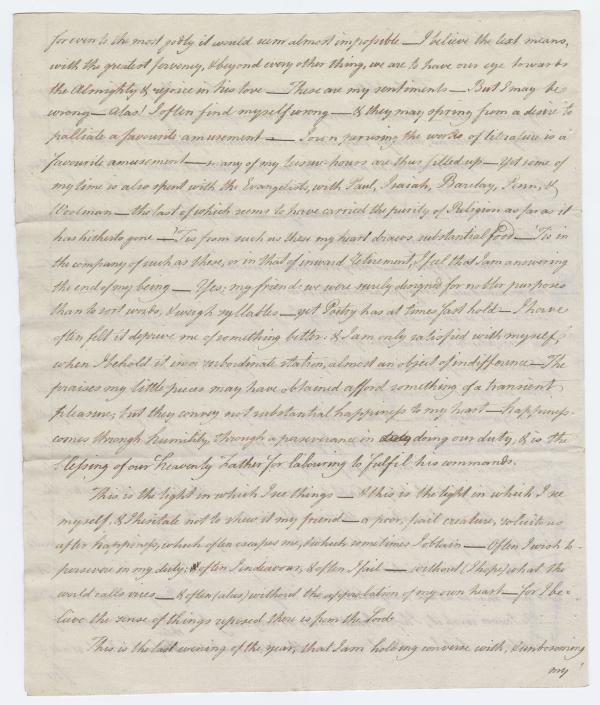 for even to the most godly it would seem almost impossible — I believe the text means,
with the greatest fervency, & beyond every other thing, we are to have our eye towards
the Almighty & rejoice in his love — These are my sentiments — But I may be
wrong — Alas! I often find myself wrong — & they may spring from a desire to
palliate a favourite amusement — I own, perusing the works of literature is a
favourite amusement — many of my leisure-hours are thus filled up — yet some of
my time is also spent with the Evangelists, with Paul, Isaiah, Barclay, Penn, &
Woolman — the last of which seems to have carried the purity of Religion as far as it
has hitherto gone — 'Tis from such as these my heart draws substantial food — 'Tis in
the company of such as these, or in that of inward retirement, I feel that I am answering
the end of my being — Yes, my friend, we were surely designed for nobler purposes
than to sort words, & weigh syllables — yet Poetry has at times fast hold — I have
often felt it deprive me of something better: & I am only satisfied with myself,
when I behold it in a subordinate station, almost an object of indifference — The
praises my little pieces may have obtained afford something of a transient
pleasure, but they convey not substantial happiness to my heart — happiness
comes through humility, through a perseverance in doing our duty, & is the
blessing of our Heavenly Father for labouring to fulfil his commands.
This is the light in which I see things — & this is the light in which I see
myself, & I hesitate not to shew it my friend — a poor, frail creature, solicitous
after happiness, which often escapes me, & which sometimes I obtain — Often I wish to
persevere in my duty; & often I endeavour, & often I fail — without (I hope) what the
world calls vices — & often (alas) without the approbation of my own heart — for I be-
lieve the sense of things reposed there is from the Lord.
This is the last evening of the year, that I am holding converse with, & unbosoming
my